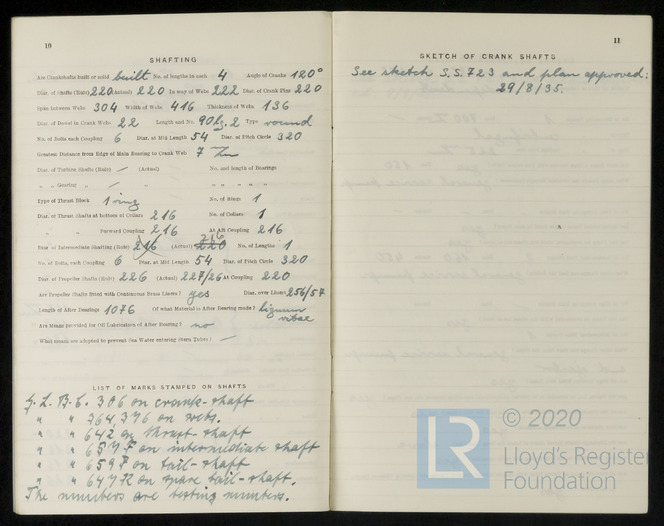 10
SHAFTING
Are Crankshafts built or solid built No. of lengths in each 4 Angle of Cranks 120°
Diar. of Shafts (Rule) 220 (Actual) 220 In way of Webs 222 Diar. of Crank Pins 220
Space between Webs 304 Width of Webs 416 Thickness of Webs 136
Diar. of Dowel in Crank Webs 22 Length and No. 90 lg. 2 Type round
No. of Bolts each Coupling 6 Diar. at Mid Length 54 Diar. of Pitch Circle 320
Greatest Distance from Edge of Main Bearing to Crank Web 7
Diar. of Turbine Shafts (Rule) — (Actual) No. and length of Bearings
" " Gearing — " " " " "
Type of Thrust Block 1 ring No. of Rings 1
Diar. of Thrust Shafts at bottom of Collars 216 No. of Collars 1
" " Forward Coupling 216 At Aft Coupling 216
Diar. of Intermediate Shafting (Rule) 216 (Actual) 220 216 No. of Lengths 1
No. of Bolts, each Coupling 6 Diar. at Mid Length 54 Diar. of Pitch Circle 320
Diar. of Propeller Shafts (Rule) 226 (Actual) 227/26 At Coupling 220
Are Propeller Shafts fitted with Continuous Brass Liners? yes Diar. over Liners 256/54
Length of After Bearings 1076 Of what Material is After Bearing made? lignum vitae
Are Means provided for Oil Lubrication of After Bearing? no
What means are adopted to prevent Sea Water entering Stern Tubes? —
LIST OF MARKS STAMPED ON SHAFTS
306 on crank-shaft
" " 364,376 on webs.
" " 642 on thrust-shaft
" " on intermediate shaft
" " on tail-shaft
" " on spare tail-shaft.
The numbers are testing numbers.
11
SKETCH OF CRANK SHAFTS
See sketch S.S. 723 and plan approved:
29/8/35.
LR
© 2020
Lloyd's Register
Foundation